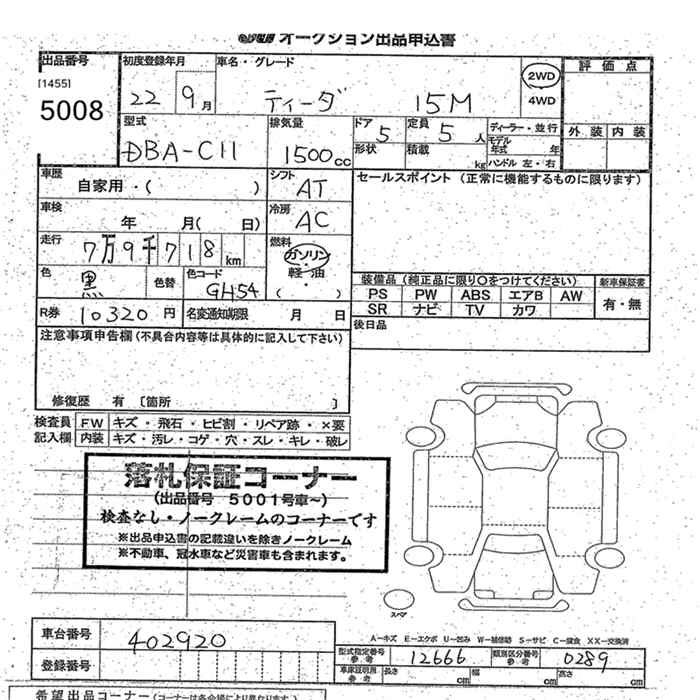 オークション出品申込書
出品番号 初度登録年月 車名・グレード 評価点
[1455] 2WD
5008 22 9月 ティーダ 15M 4WD
型式 排気量 ドア 5 定員 5人 ディーラー・並行 外装 内装
モデル年式 年
DBA-C11 1500cc 形状 積載 kg ハンドル 左・右
車歴 シフト セールスポイント (正常に機能するものに限ります)
自家用・( ) AT
車検 冷房
年 月( 日) AC
走行 燃料
7万9千718km ガソリン
色 色替 色コード 軽・油
黒 GH54 ( )
装備品 (純正品に限り〇をつけてください) 新車保証書
PS PW ABS エアB AW 有・無
SR ナビ TV カワ
R券 10320円 名変通知期限 月 日 後日品
注意事項申告欄 (不具合内容等は具体的に記入して下さい)
修復歴 有 〔箇所 〕
検査員 FW キズ・飛石・ヒビ割・リペア跡・×要
記入欄 内装 キズ・汚レ・コゲ・穴・スレ・キレ・破レ
落札保証コーナー
(出品番号 5001号車～)
検査なし・ノークレームのコーナーです
※出品申込書の記載違いを除きノークレーム
※不動車、冠水車など災害車も含まれます。
スペア
A－キズ E－エクボ U－凹み W－補修跡 S－サビ C－腐食 XX－交換済
車台番号 402920
型式指定番号 参考 12666 類別区分番号 参考 0289
登録番号 車庫証明用 参考 長さ cm 幅 cm 高さ cm
希望出品コーナー